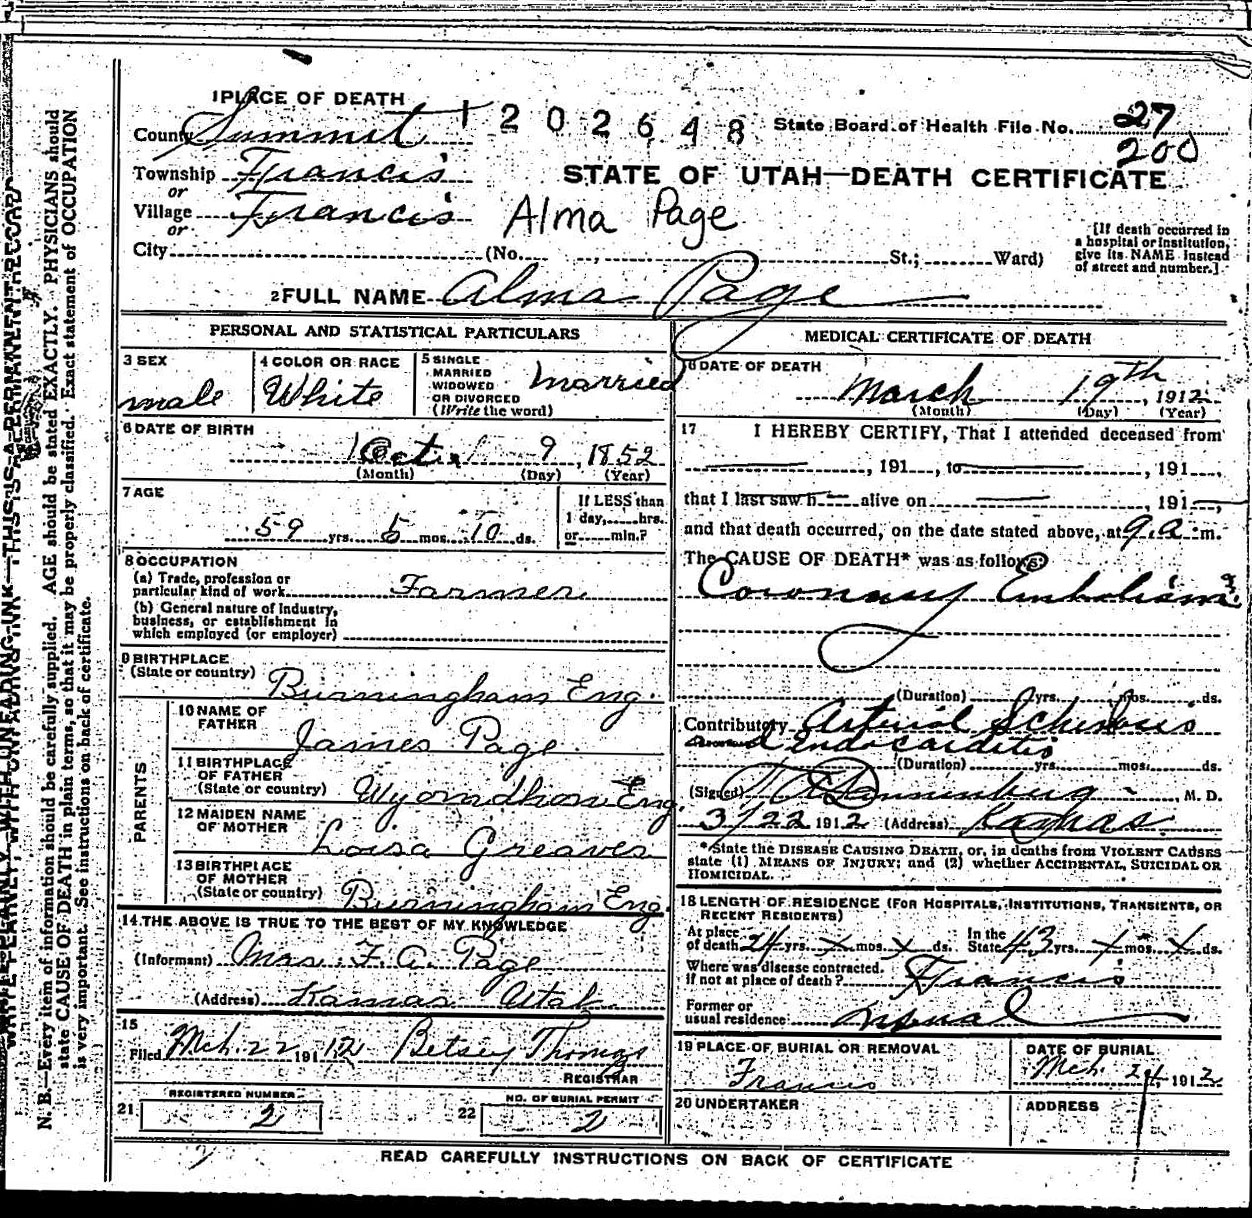 1 PLACE OF DEATH
1202648
State Board of Health File No. 27
200
County Summit
Township Francis
or
Village Francis
or
City (No. , St.; Ward)
STATE OF UTAH—DEATH CERTIFICATE
Alma Page
[If death occurred in
a hospital or institution,
give its NAME instead
of street and number.]
2 FULL NAME Alma Page
PERSONAL AND STATISTICAL PARTICULARS
3 SEX
male
4 COLOR OR RACE
White
5 SINGLE
MARRIED
WIDOWED
OR DIVORCED
(Write the word)
Married
6 DATE OF BIRTH
Oct. 9, 1852
(Month) (Day) (Year)
7 AGE
59 yrs. 5 mos. 10 ds.
If LESS than
1 day,......hrs.
or......min.?
8 OCCUPATION
(a) Trade, profession or
particular kind of work Farmer
(b) General nature of industry,
business, or establishment in
which employed (or employer)
9 BIRTHPLACE
(State or country) Burningham Eng.
PARENTS
10 NAME OF
FATHER James Page
11 BIRTHPLACE
OF FATHER
(State or country) Wyomdhom Eng.
12 MAIDEN NAME
OF MOTHER Loisa Greaves
13 BIRTHPLACE
OF MOTHER
(State or country) Burningham Eng.
14 THE ABOVE IS TRUE TO THE BEST OF MY KNOWLEDGE
(Informant) Mrs. F. A. Page
(Address) Kamas Utah
15
Filed Mch. 22 1912 Betsey Thomas
REGISTRAR
REGISTERED NUMBER
21 2
NO. OF BURIAL PERMIT
22 2
MEDICAL CERTIFICATE OF DEATH
16 DATE OF DEATH
March 19th, 1912
(Month) (Day) (Year)
17 I HEREBY CERTIFY, That I attended deceased from
, 191 , to , 191 ,
that I last saw h alive on 191 ,
and that death occurred, on the date stated above, at 9 a. m.
The CAUSE OF DEATH* was as follows:
Coronary Embolism
(Duration) yrs. mos. ds.
Contributory Arterial Schlerosis
and Endocarditis
(Duration) yrs. mos. ds.
(Signed) Dannenberg M. D.
3/22 1912 (Address) Kamas.
*State the DISEASE CAUSING DEATH, or, in deaths from VIOLENT CAUSES
state (1) MEANS OF INJURY; and (2) whether ACCIDENTAL, SUICIDAL OR
HOMICIDAL.
18 LENGTH OF RESIDENCE (FOR HOSPITALS, INSTITUTIONS, TRANSIENTS, OR
RECENT RESIDENTS)
At place
of death 24 yrs. x mos. x ds.
In the
State 43 yrs. x mos. x ds.
Where was disease contracted,
if not at place of death? Francis
Former or
usual residence usual
19 PLACE OF BURIAL OR REMOVAL
Francis
DATE OF BURIAL
Mch. 24 1912
20 UNDERTAKER
ADDRESS
READ CAREFULLY INSTRUCTIONS ON BACK OF CERTIFICATE
WRITE PLAINLY, WITH UNFADING INK—THIS IS A PERMANENT RECORD
N. B.—Every item of information should be carefully supplied. AGE should be stated EXACTLY. PHYSICIANS should
state CAUSE OF DEATH in plain terms, so that it may be properly classified. Exact statement of OCCUPATION
is very important. See instructions on back of certificate.